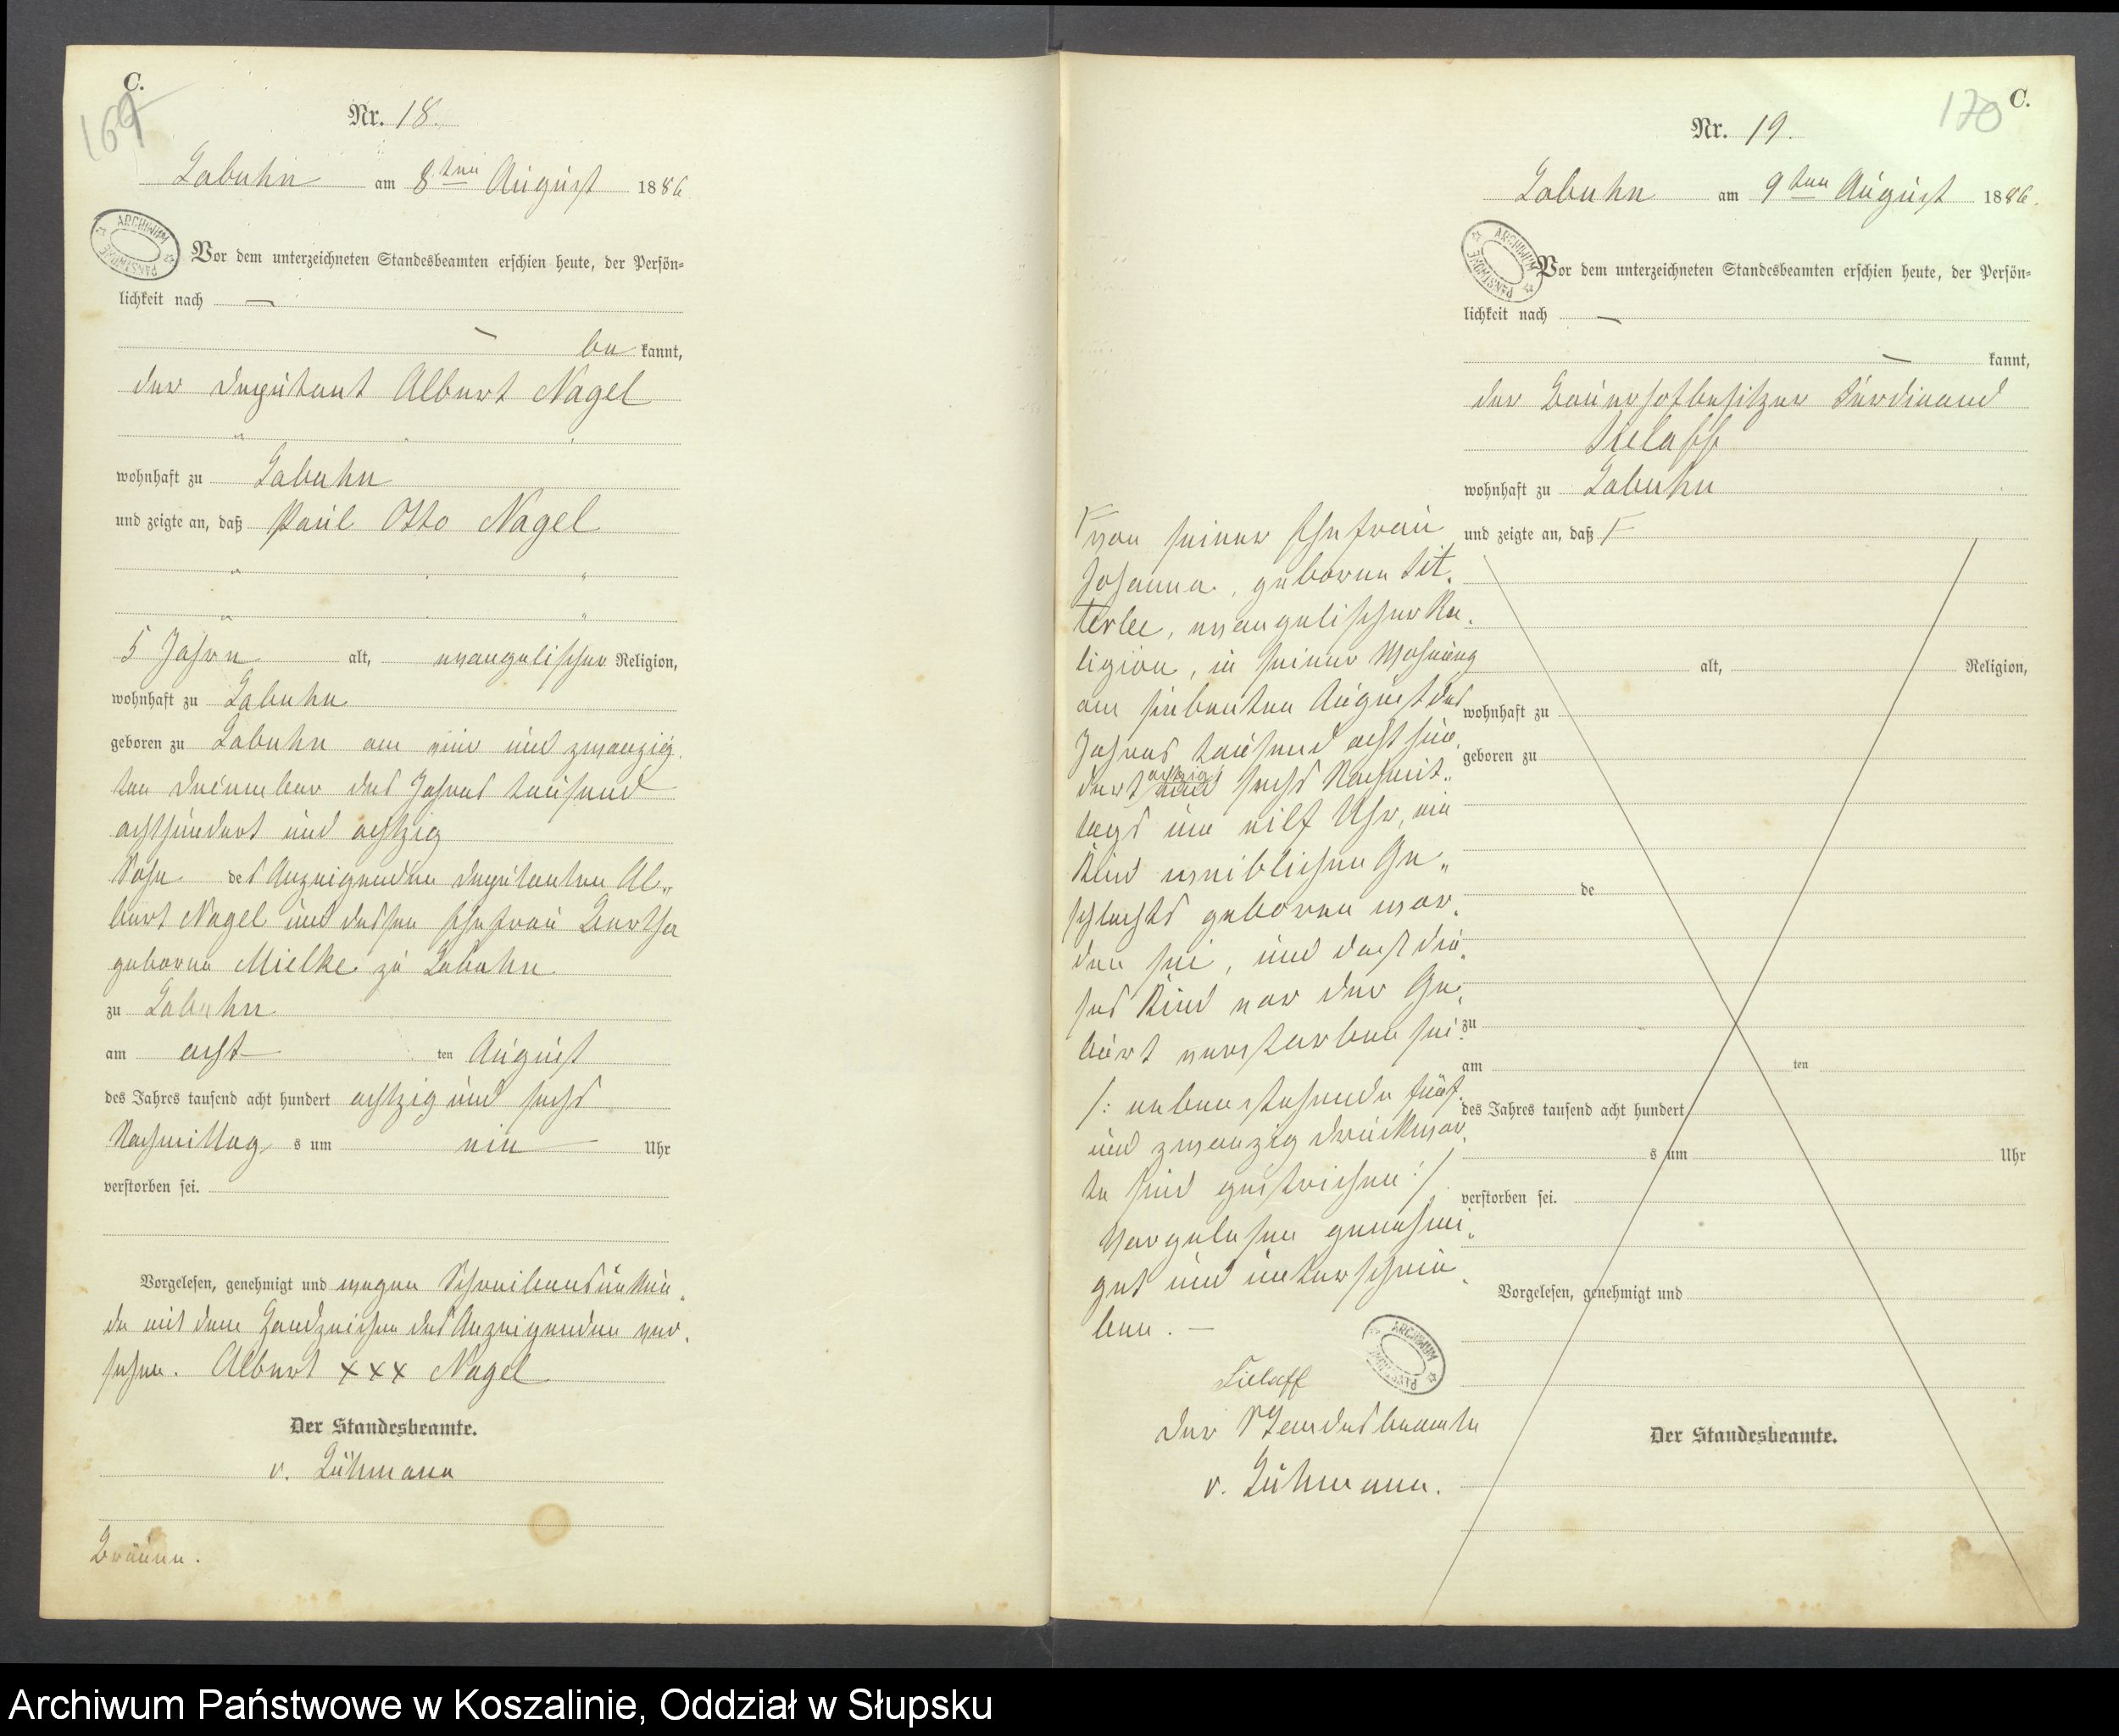 C.
169
Nr. 18.
Labuhn am 8ten August 1886
ARCHIWUM PAŃSTWOWE
Vor dem unterzeichneten Standesbeamten erschien heute, der Persön=
lichkeit nach —
— be kannt,
der Deputant Albert Nagel
wohnhaft zu Labuhn
und zeigte an, daß Paul Otto Nagel
5 Jahre alt, evangelischer Religion,
wohnhaft zu Labuhn
geboren zu Labuhn am vier und zwanzig
ten Dezember des Jahres tausend
achthundert und achtzig
Sohn des Anzeigenden Deputanten Al„
bert Nagel und dessen Ehefrau Bertha
geborne Mielke zu Labuhn
zu Labuhn
am acht ten August
des Jahres tausend acht hundert achtzig und sechs
Nachmittag s um ein — Uhr
verstorben sei.
Vorgelesen, genehmigt und wegen Schreibensunkun„
de mit dem Handzeichen des Anzeigenden ver„
sehen. Albert xxx Nagel
Der Standesbeamte.
v. Lühmann
Bräune.
C.
170
Nr. 19.
Labuhn am 9ten August 1886.
ARCHIWUM PAŃSTWOWE
Vor dem unterzeichneten Standesbeamten erschien heute, der Persön=
lichkeit nach —
— kannt,
der Bauerhofbesitzer Ferdinand
Tielaff
wohnhaft zu Labuhn
und zeigte an, daß F
F von seiner Ehefrau
Johanna, geborene Lit„
terlee, evangelischer Re„
ligion, in seiner Wohnung
am siebenten August des
Jahres tausend acht hun„
dert achtzig und sechs Nachmit„
tags um eilf Uhr, ein
Kind weiblichen Ge„
schlechts geboren wor„
den sei, und daß die„
ses Kind vor der Ge„
burt verstorben sei.
/: nebenstehende fünf
und zwanzig Druckwor„
te sind gestrichen :/
Vorgelesen genehmi„
get und unterschrie„
ben. —
Tielaff
ARCHIWUM PAŃSTWOWE
Der Standesbeamte
v. Lühmann.
alt, Religion,
wohnhaft zu
geboren zu
de
zu
am ten
des Jahres tausend acht hundert
s um Uhr
verstorben sei.
Vorgelesen, genehmigt und
Der Standesbeamte.
Archiwum Państwowe w Koszalinie, Oddział w Słupsku